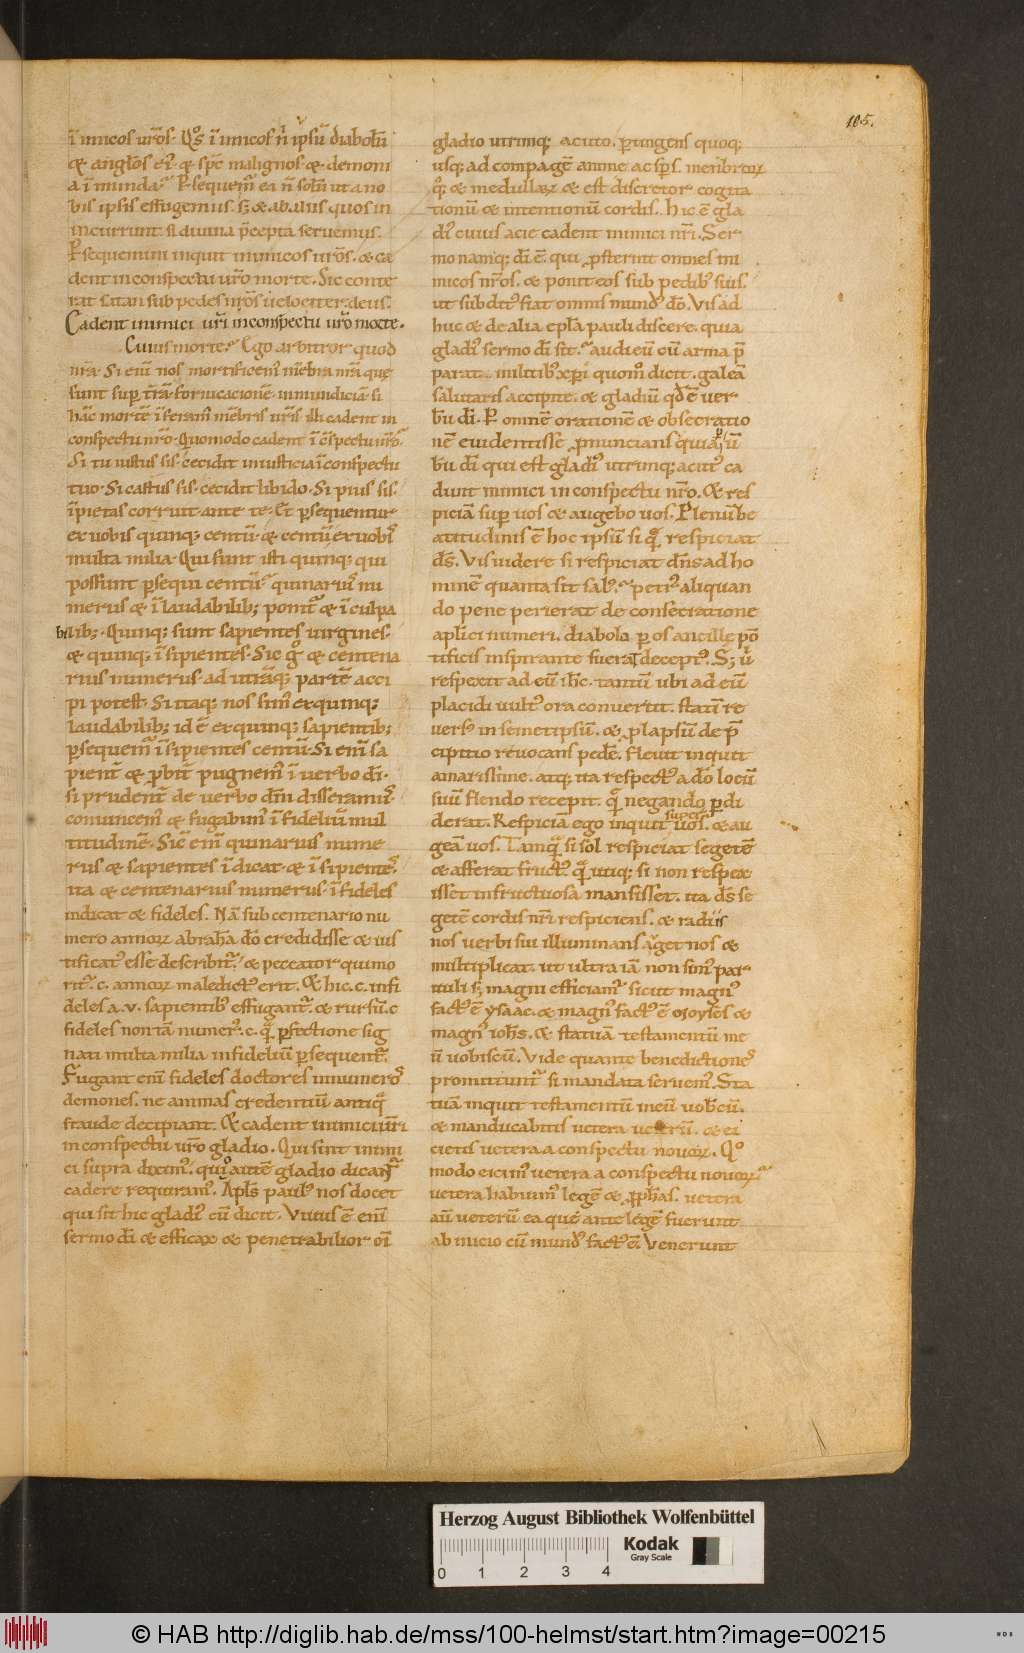 105.
ī imicos ur̄os. Qͦs ī imicos n̄ ipsū diabolū
& anglos ei᷒ & sp̄c malignos & demoni
a ī munda? P̲sequem᷒ ea n̄ solū ut a no
bis ipsis effugemus. s; & ab aliis quos in
incurrunt. si diuina p̄cepta seruemus.
P̲sequemini inquit inimicos ur̄os. & ca
dent in conspectu ur̄o morte. Sic conte
rat satan sub pedes nr̄os uelociter deus.
Cadent inimici ur̄i in conspectu ur̄o morte.
Cuius morte? Ego arbitror quod
nr̄a. Si enī nos mortificem᷒ mēbra nr̄a que
sunt sup̲ tr̄ā fornicacionē. inmundiciā. si
hāc mortē īferam᷒ mēbris ur̄is. illi cadent in
conspectu nr̄o. Quomodo cadent ī c̄spectu nr̄o?
Si tu iustus sis. cecidit iniusticia ī conspectu
tuo. Si castus sis. cecidit libido. Si pius sis.
īpietas corruit ante te. Et p̲sequentur
ex uobis quinq; centū. & centū ex uob᷒
multa milia. Qui sunt isti quinq; qui
possunt p̲sequi centū? quinari᷒ nu
merus & ī laudabilib; ponit᷒ & ī culpa
bilib;. Quinq; sunt sapientes uirgines.
& quinq; īsipientes. Sic gͦ & centena
rius numerus. ad utrāq; partē acci
pi potest. Si itaq; nos sim᷒ ex quinq;
laudabilib; id ē ex quinq; sapientib;
p̲sequem᷒ īsipientes centū. Si enī sa
pient᷒ & p̲bit᷒ pugnem᷒ ī uerbo dī.
si prudent᷒ de uerbo dn̄i disseram᷒
conuincem᷒ & fugabim᷒ īfideliū mul
titudinē. Sic enī quinarius nume
rus & sapientes īdicat & īsipientes.
ita & centenarius numerus. īfideles
indicat & fideles. Nā sub centenario nu
mero annoꝝ abrahā dō credidisse & ius
tificat᷒ esse describit᷒. & peccator qui mo
rit᷒. c. annoꝝ maledict᷒ erit. Et hic. c. infi
deles a. v. sapientib᷒ effugant᷒. & rursū. c
fideles non tā numer᷒. c. q̄ p̲fectione sig
nati multa milia infideliū p̲sequent᷒.
Fugant enī fideles doctores innumeros
demones. ne animas credentiū antiq̄
fraude decipiant. Et cadent inimici ur̄i
in conspectu ur̄o gladio. Qui sint inimi
ci supra dixim᷒. quo autē gladio dicant᷒
cadere requiram᷒. Apl̄s paul᷒ nos docet
qui sit hic gladi᷒ cū dicit. Viuus ē enī
sermo dī & efficax & penetrabilior oī
gladio utrinq; acuto. p̲tingens quoq;
usq; ad compagē anime ac sp̄s. membroꝝ
q; & medullaꝝ & est discretor cogita
tionū & intentionū cordis. Hic ē gla
di᷒ cuius acie cadent inimici nr̄i. Ser
mo namq; dī ē. qui p̲sternit omnes ini
micos nr̄os. & ponit eos sub pedib᷒ suis.
ut subdit᷒ fiat omnis mund᷒ dō. Vis ad
huc & de alia epl̄a pauli discere. quia
gladi᷒ sermo dī sit? audi eū cū arma p̄
parat militib᷒ xp̄i quom̊ dicit. galeā
salutaris accipite. & gladiū qd̄ ē uer
bū dī. P̲ omnē orationē & obsecratio
nē euidentisse p̲nuncians quia p̲ uͥ
bū dī qui est gladi᷒ utrinq; acut᷒ ca
dunt inimici in conspectu nr̄o. Et res
piciā sup̲ uos & augebo uos. Plenū be
atitudinis ē hoc ipsū si q̄ respiciat
ds̄. Vis uidere si respiciat dn̄s ad ho
minē quanta sit sal᷒? petr᷒ aliquan
do pene perierat de consecratione
aplici numeri. diabolo p̲ os ancille pō
tificis inspirante fuerat decept᷒. S; uͥ
respexit ad eū ih̄c. tantū ubi ad eū
placidi uult᷒ ora conuertit. statī re
uers᷒ in semetipsū. & p̲lapsū de p̄
cipitio reuocans pedē. fleuit inquit
amarissime. atq; ita respect᷒ a dō locū
suū flendo recepit. qͣ negando p̲di
derat. Respiciā ego inquit super uos. & au
geā uos. Tamq̄ si sol respiciat segetē
& afferat fruct᷒. q̄ utiq; si non respex
isset infructuosa mansisset. ita ds̄ se
getē cordis nr̄i respiciens. & radiis
nos uerbi sui illuminans auget nos &
multiplicat. ut ultra iā non sim᷒ par
uuli s; magni efficiam᷒ sicut magn᷒
fact᷒ ē ysaac. & magn᷒ fact᷒ ē moyses &
magn᷒ ioh̄s. Et statuā testamentū me
ū uobiscū. Vide quante benedictiones
promittunt᷒ si mandata seruem᷒. Sta
tuā inquit testamentū meū uob̄cū.
& manducabitis uetera ueterū. & ei
cietis uetera a conspectu nouoꝝ. Qͦ
modo eicim᷒ uetera a conspectu nouoꝝ?
uetera habuim᷒ legē & p̲phas. uetera
aū ueterū ea que ante legē fuerunt
ab inicio cū mund᷒ fact᷒ ē. Venerunt
Herzog August Bibliothek Wolfenbüttel
Kodak
Gray Scale
0 1 2 3 4
© HAB http://diglib.hab.de/mss/100-helmst/start.htm?image=00215